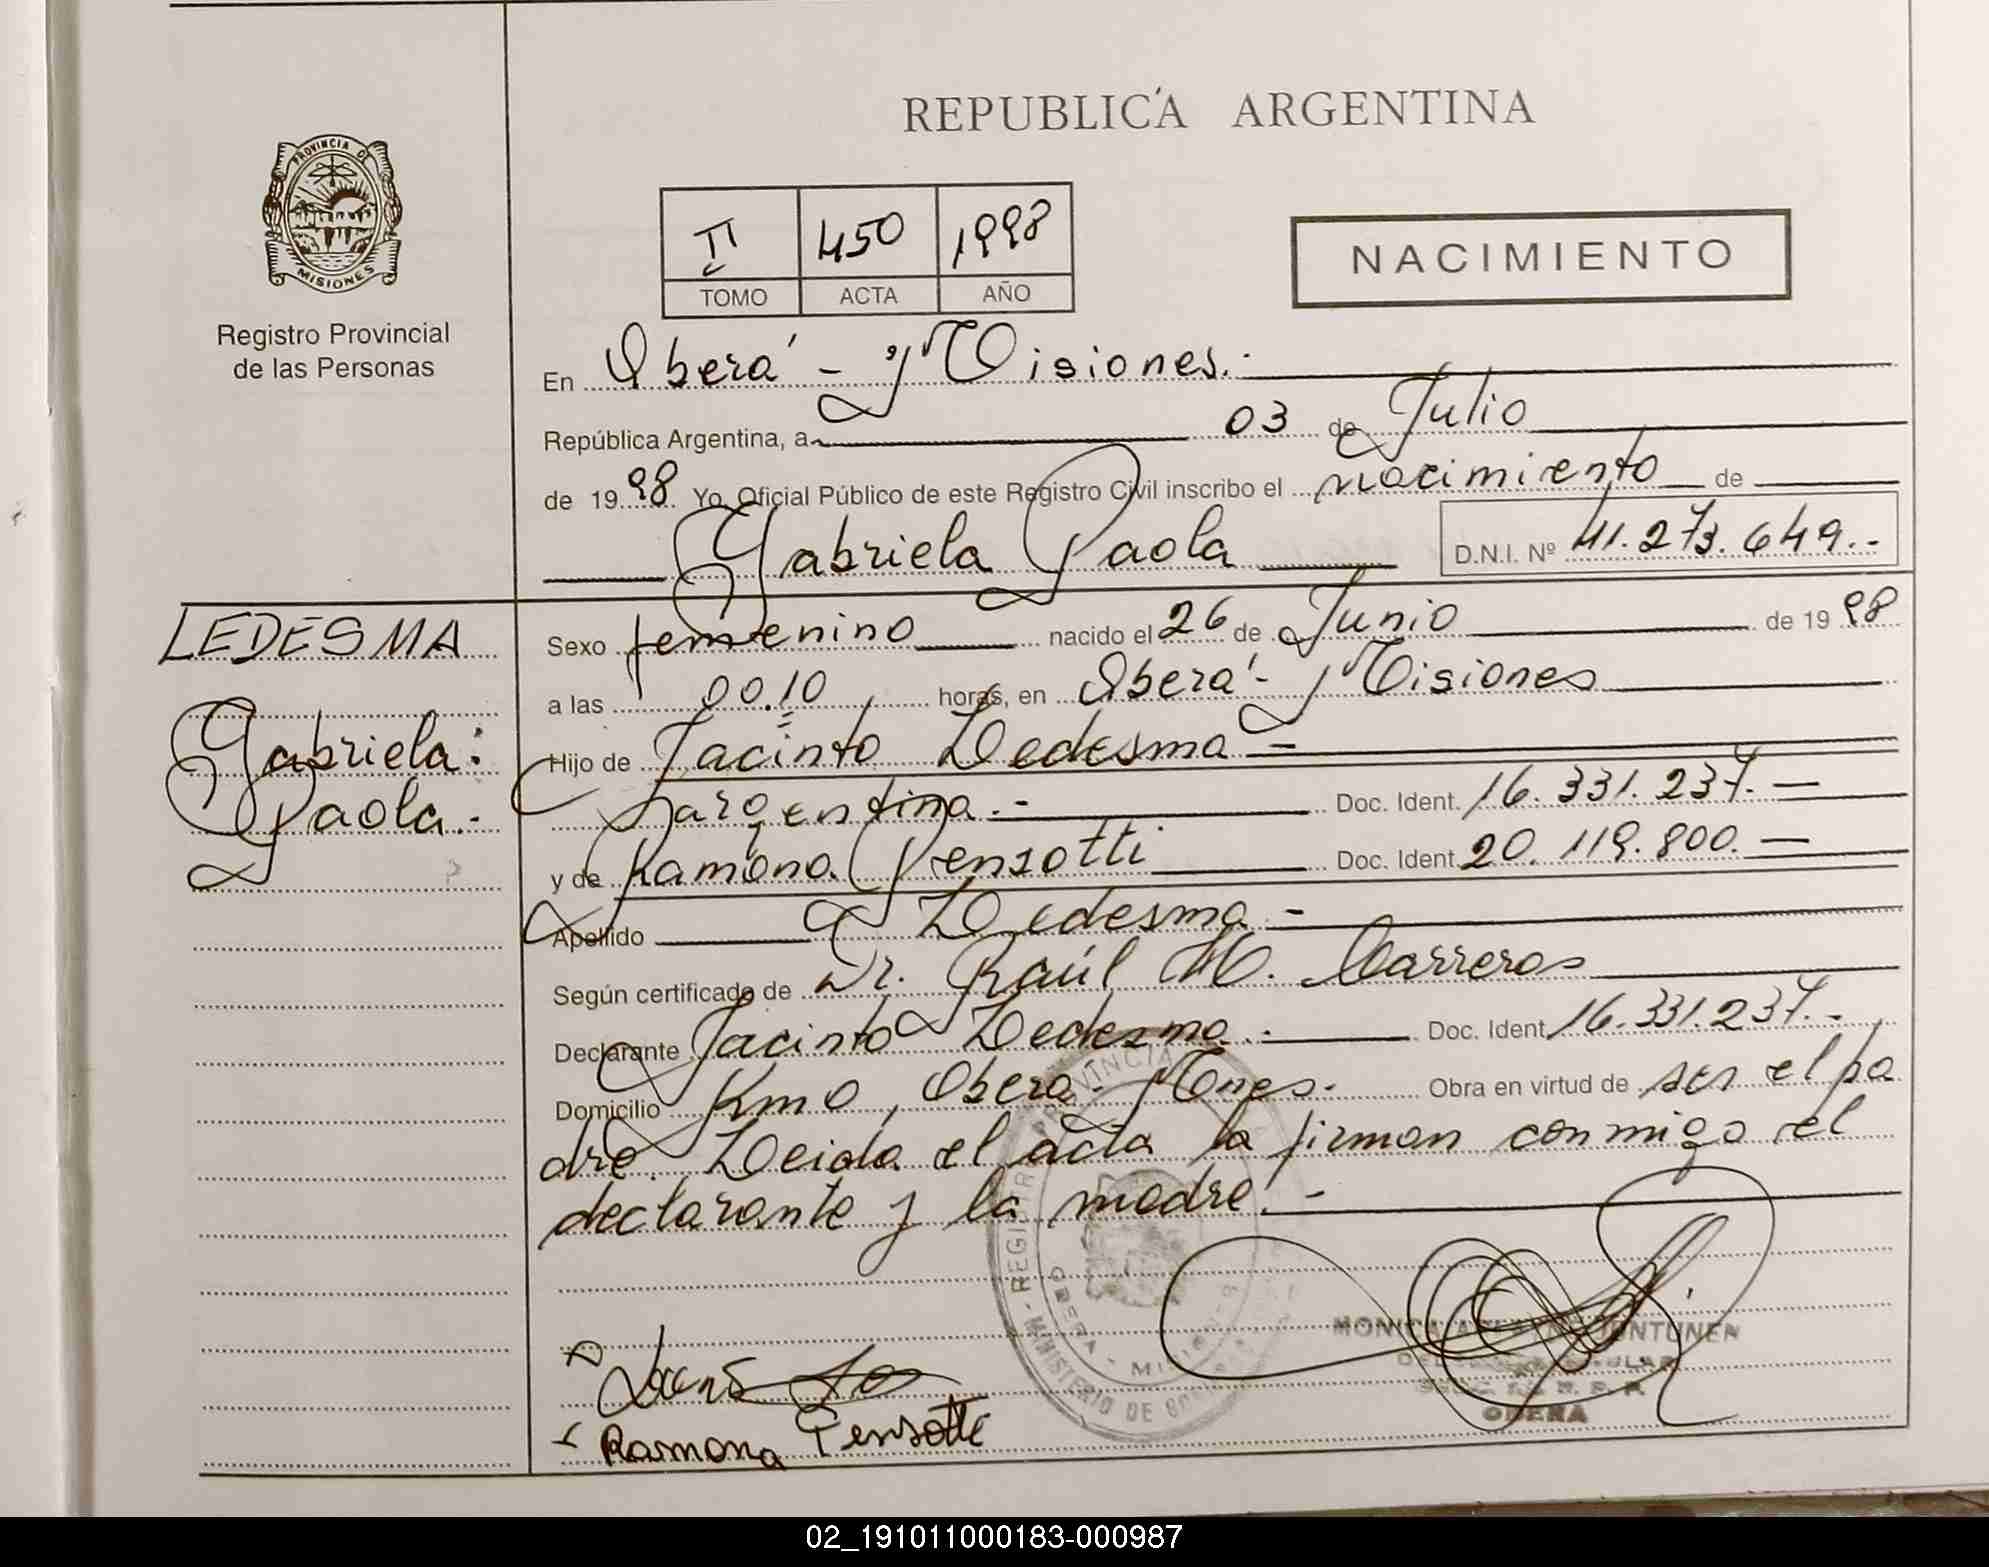 REPUBLICA ARGENTINA
PROVINCIA DE
MISIONES
Registro Provincial
de las Personas
II 450 1998
TOMO ACTA AÑO
NACIMIENTO
En Oberá - Misiones.
República Argentina, a 03 de Julio
de 1998 Yo, Oficial Público de este Registro Civil inscribo el nacimiento de
Gabriela Paola D.N.I. Nº 41.273.649.-
LEDESMA
Gabriela
Paola.-
Sexo femenino nacido el 26 de Junio de 1998
a las 00.10 horas, en Oberá - Misiones
Hijo de Jacinto Ledesma -
argentina.- Doc. Ident. 16.331.237.-
y de Ramona Pensotti Doc. Ident. 20.119.800.-
Apellido Ledesma -
Según certificado de Dr. Raúl M. Carreras
Declarante Jacinto Ledesma.- Doc. Ident. 16.331.237.-
Domicilio Km 0, Oberá - Mnes. Obra en virtud de ser el pa
dre. Leida el acta la firman conmigo el
declarante y la madre.-
PROVINCIA
REGISTR
MINISTERIO DE
OBERA - MISIONES
MONICA
OBERA
Ramona Pensotti
02_191011000183-000987